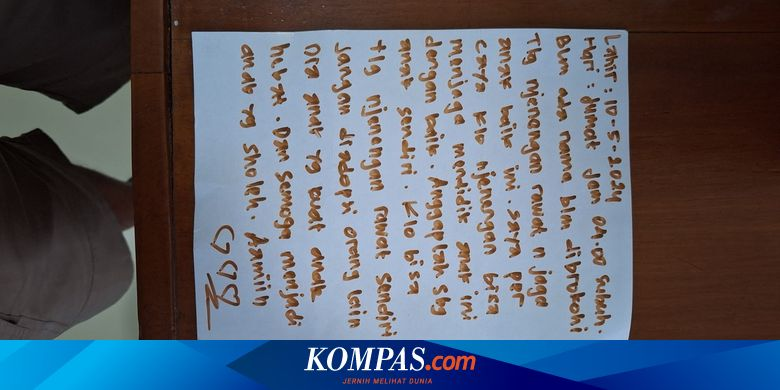 Lahir : 10-5-2024
Hari : Jumat jam 04.00 subuh
Blm ada nama blm dibrokohi
Tlg njenengan rawat n jaga
anak baik ini. saya per
caya klo njenengan bisa
menjaga mendidik anak ini
dengan baik. Anggaplah sbg
anak sendiri. Klo bisa
tlg njenengan rawat sendiri
jangan diadopsi orang lain
Dia anak yg kuat anak
hebat. Dan semoga menjadi
anak yg sholeh. Aamiiin
KOMPAS.com
JERNIH MELIHAT DUNIA